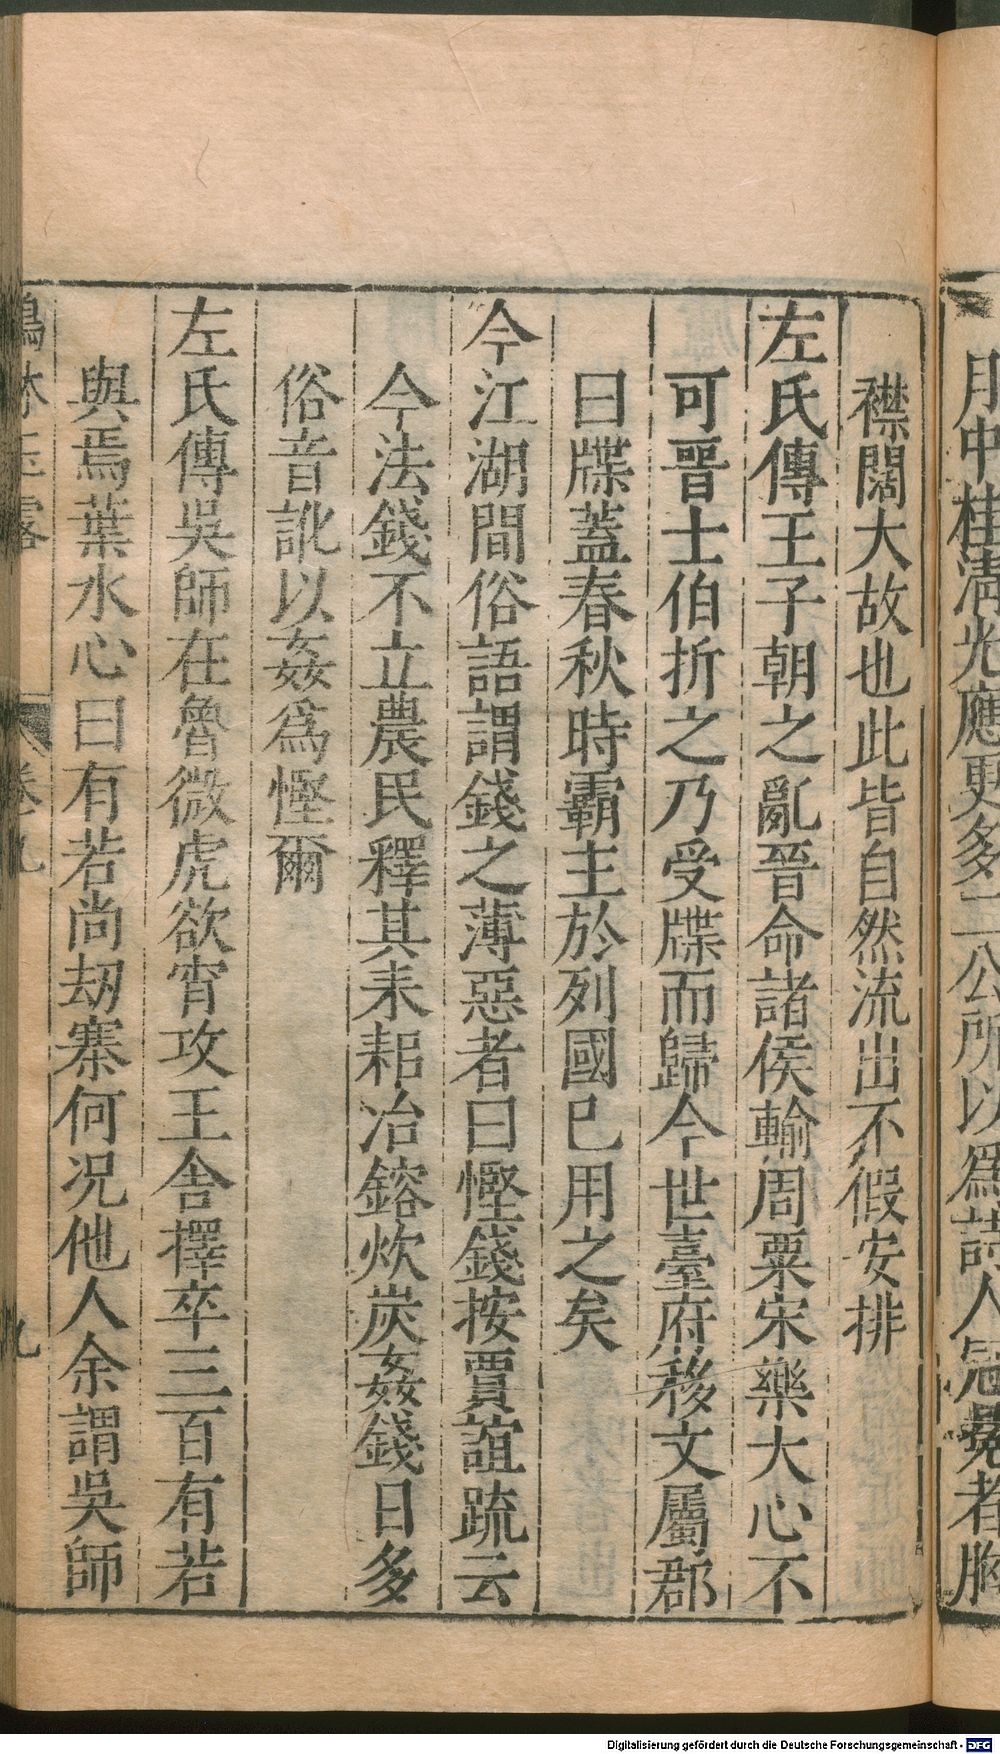 月中桂清光應更多二公所以爲詩人冠冕者胸
襟闊大故也此皆自然流出不假安排
左氏傳王子朝之亂晉命諸侯輸周粟宋樂大心不
可晋士伯折之乃受牒而歸今世臺府移文屬郡
曰牒蓋春秋時霸主於列國已用之矣
今江湖間俗語謂錢之薄惡者曰慳錢按賈誼疏云
今法錢不立農民釋其耒耜冶鎔炊炭姦錢日多
俗音訛以姦爲慳爾
左氏傳吳師在魯微虎欲宵攻王舍擇卒三百有若
與焉葉水心曰有若尚刼寨何况他人余謂吳師
鶴林玉露
卷九
九
Digitalisierung gefördert durch die Deutsche Forschungsgemeinschaft - DFG